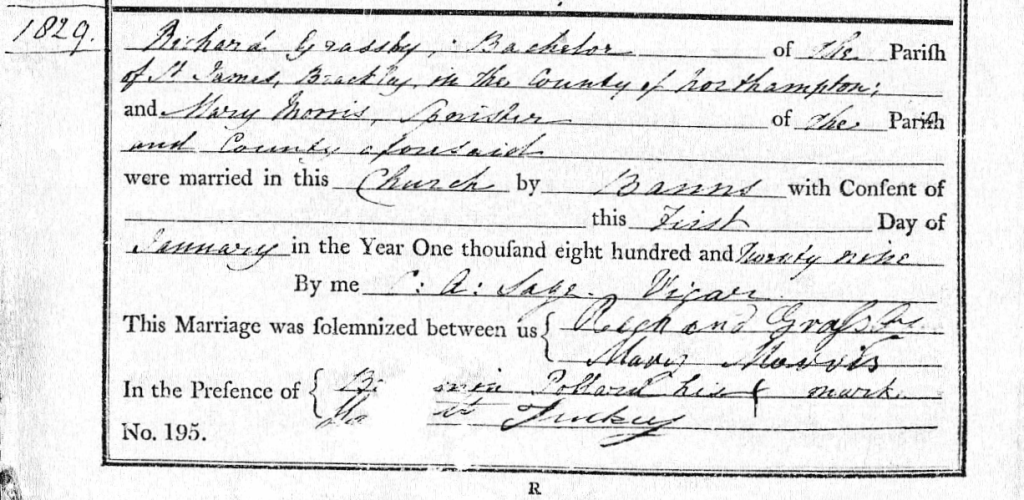 1829.
Richard Grassby, Bachelor of the Pariſh
of St James, Brackley, in the County of Northampton;
and Mary Morris, Spinster of the Pariſh
and County aforesaid
were married in this Church by Banns with Conſent of
this First Day of
January in the Year One thouſand eight hundred and Twenty nine
By me C: A: Sage Vicar
This Marriage was ſolemnized between us { Richard Graſsby
Mary Morris
In the Preſence of { Pollard his mark
Tuckey
No. 195.
R